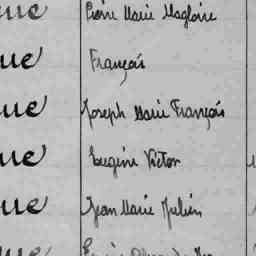 ue Pierre Marie Magloire
ue François
ue Joseph Marie François
ue Eugène Victor
ue Jean Marie Julien
ue